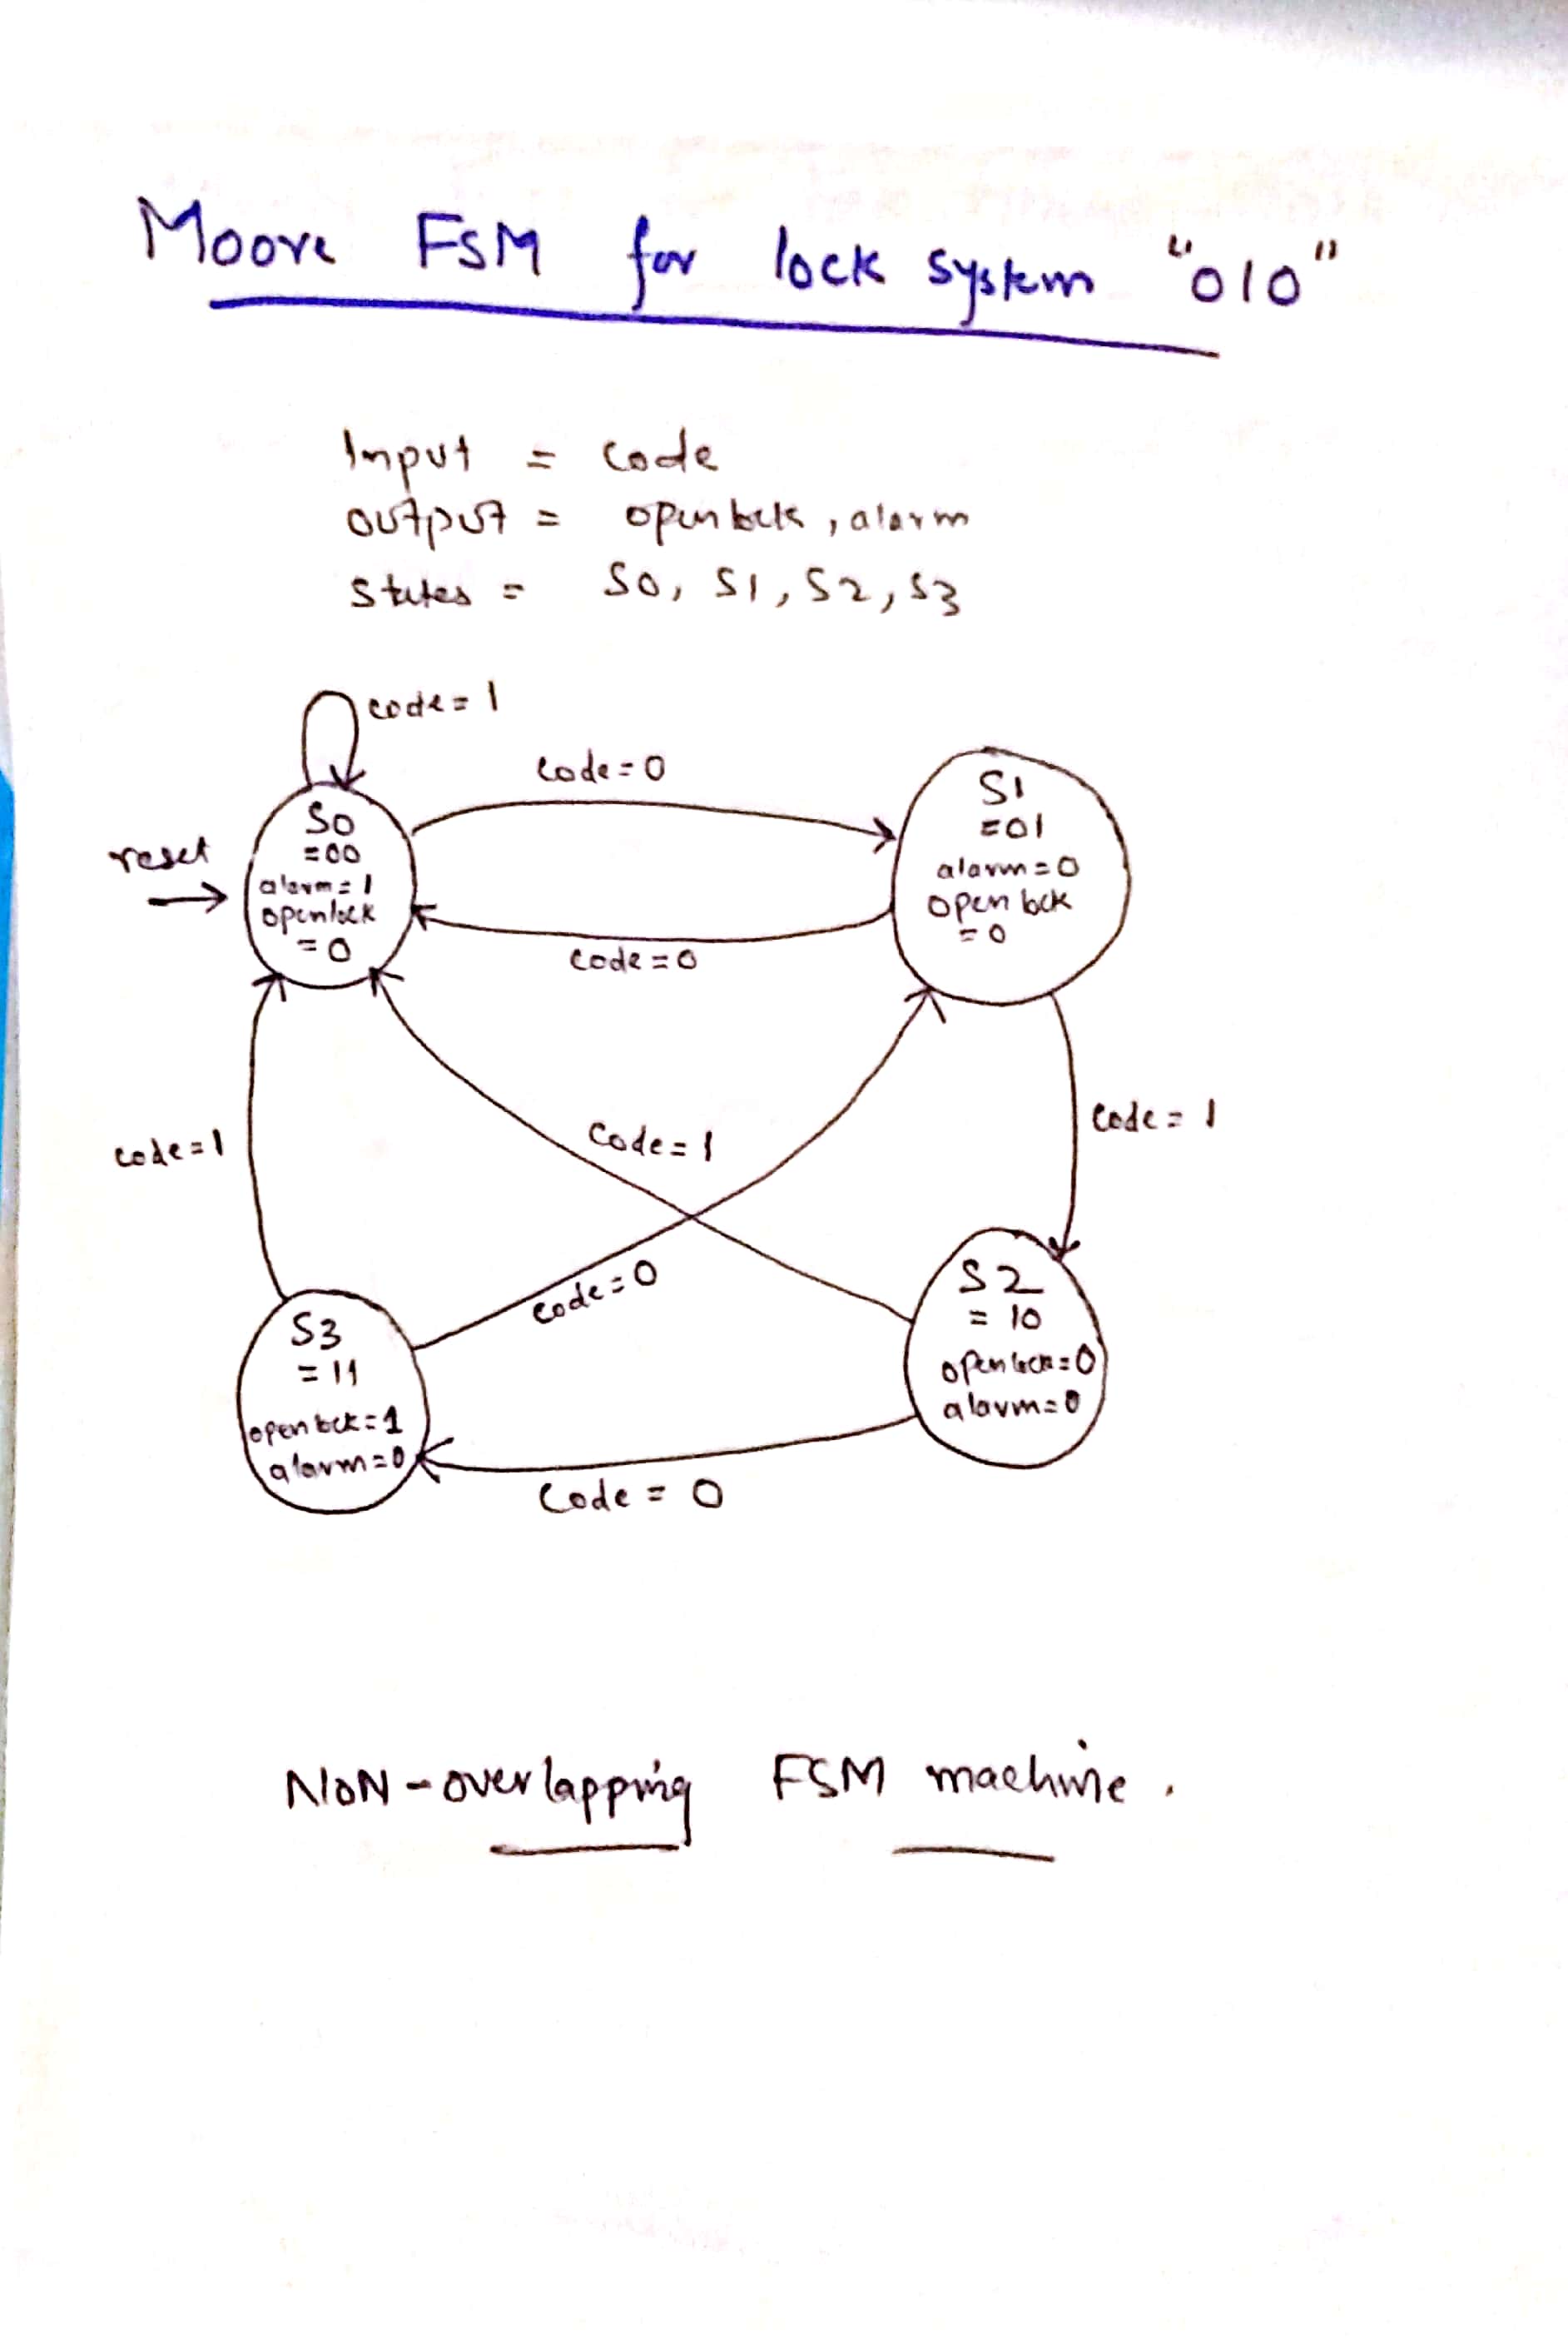 Moore FSM for lock system "010"
Input = code
output = openlock, alarm
states = S0, S1, S2, S3
code = 1
code = 0
reset
S0
=00
alarm=1
openlock
=0
S1
=01
alarm=0
openlock
=0
code = 0
code = 1
code = 1
code = 1
code = 0
S3
=11
openlock=1
alarm=0
S2
= 10
openlock=0
alarm=0
Code = 0
NON-overlapping FSM machine.